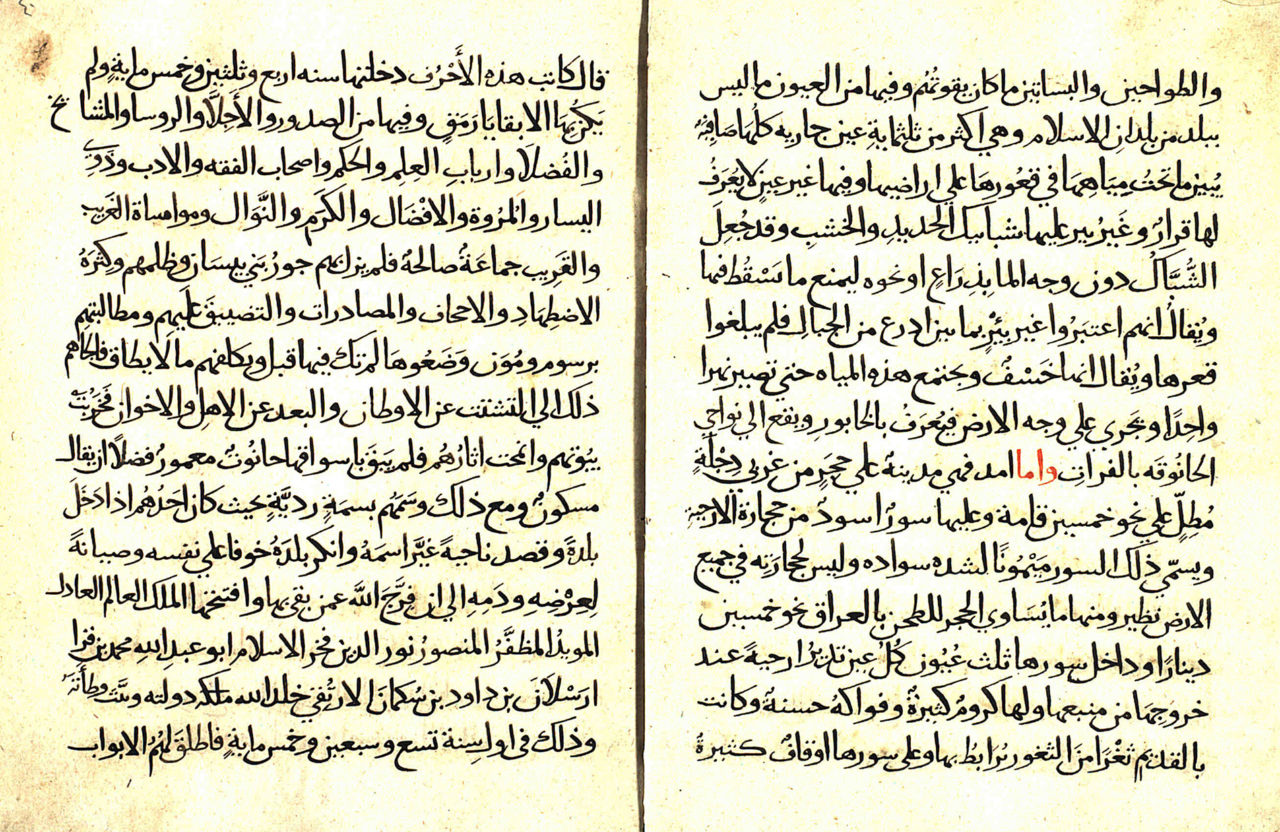 والطواحين والبساتين ما كان يقوتهم وفيها من العيون ما ليس
ببلد من بلدان الاسلام وهي اكثر من ثلثماية عين جاريه كلها صافيه
يبين ما تحت مياهها في قعورها علي اراضيها وفيها غير عين لا يعرف
لها قرار وغير بير عليها شبابيك الحديد والخشب وقد جعل
الشباك دون وجه الما بذراع او نحوه ليمنع ما تسقط فيها
ويقال انهم اعتبروا غير بئر بما بين اذرع من الجبال فلم يبلغوا
قعرها ويقال انها خسف وتجتمع هذه المياه حتي تصير نهرا
واحدا وتجري علي وجه الارض فيعرف بالخابور ويقع الي نواحي
الحانوقه بالفرات واما امد فهي مدينة علي حجر من غربي دجلة
مطل علي نحو خمسين قامة وعليها سور اسود من حجارة الارحية
ويسمي ذلك السور ميمونا لشده سواده وليس لحجارته في جميع
الارض نظير ومنها ما يساوي الحجر للطحن بالعراق نحو خمسين
دينارا وداخل سورها ثلث عيون كل عين تدير ارحية عند
خروجها من منبعها ولها كروم كثيرة وفواكه حسنة وكانت
بالقديم ثغرا من الثغور يرابط بها وعلي سورها اوقاف كثيرة
قال كاتب هذه الأحرف دخلتها سنه اربع وثلثين وخمس ماية ولم
يكن بها الا بقايا رمق وفيها من الصدور والأجلا والروسا والمشايخ
والفضلا وارباب العلم والحكم واصحاب الفقه والادب وذوي
اليسار والمروة والافضال والكرم والنوال ومواساة الغريب
والقريب جماعة صالحة فلم يزل بهم جور بني نيسان وظلمهم وكثرة
الاضطهاد والاجحاف والمصادرات والتضييق عليهم ومطالبتهم
برسوم ومون وضعوها لم تك فيها قبل ويكلفهم ما لا يطاق فالجاهم
ذلك الي التشتت عن الاوطان والبعد عن الاهل والاخوان فخربت
بيوتهم وانمحت اثارهم فلم يبق باسواقها حانوت معمور فضلا ان يقال
مسكون ومع ذلك وسمهم بسمة ردية بحيث كان احدهم اذا دخل
بلدة وقصد ناحية غير اسمه وانكر بلده خوفا علي نفسه وصيانة
لعرضه ودمه الي ان فرج الله عمن بقي بها وافتتحها الملك العالم العادل
المويد المظفر المنصور نور الدين فخر الاسلام ابو عبد الله محمد بن قرا
ارسلان بن داود بن سكمان الارتقي خلد الله ملكه دولته وثبت وطأته
وذلك في اواسنة تسع وسبعين وخمس ماية فاطلق لهم الابواب